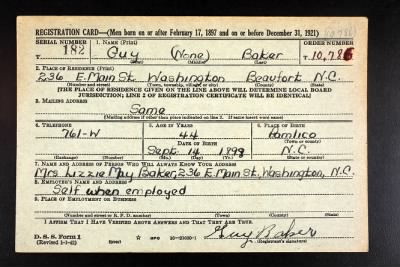 REGISTRATION CARD—(Men born on or after February 17, 1897 and on or before December 31, 1921)
SERIAL NUMBER 1. NAME (Print) ORDER NUMBER
T 182 Guy (None) Baker T 10,786
(First) (Middle) (Last)
2. PLACE OF RESIDENCE (Print)
236 E. Main St. Washington Beaufort N.C.
(Number and street) (Town, township, village, or city) (County) (State)
[THE PLACE OF RESIDENCE GIVEN ON THE LINE ABOVE WILL DETERMINE LOCAL BOARD
JURISDICTION; LINE 2 OF REGISTRATION CERTIFICATE WILL BE IDENTICAL]
3. MAILING ADDRESS
Same
(Mailing address if other than place indicated on line 2. If same insert word same)
4. TELEPHONE 5. AGE IN YEARS 6. PLACE OF BIRTH
761-W 44 Pamlico
DATE OF BIRTH (Town or county)
Sept. 14 1898 N.C.
(Exchange) (Number) (Mo.) (Day) (Yr.) (State or country)
7. NAME AND ADDRESS OF PERSON WHO WILL ALWAYS KNOW YOUR ADDRESS
Mrs Lizzie May Baker, 236 E. Main St., Washington, N.C.
8. EMPLOYER'S NAME AND ADDRESS
Self when employed
9. PLACE OF EMPLOYMENT OR BUSINESS
(Number and street or R. F. D. number) (Town) (County) (State)
I AFFIRM THAT I HAVE VERIFIED ABOVE ANSWERS AND THAT THEY ARE TRUE.
D. S. S. Form 1
(Revised 1-1-42) (over) GPO 16—21630-1 Guy Baker
(Registrant's signature)